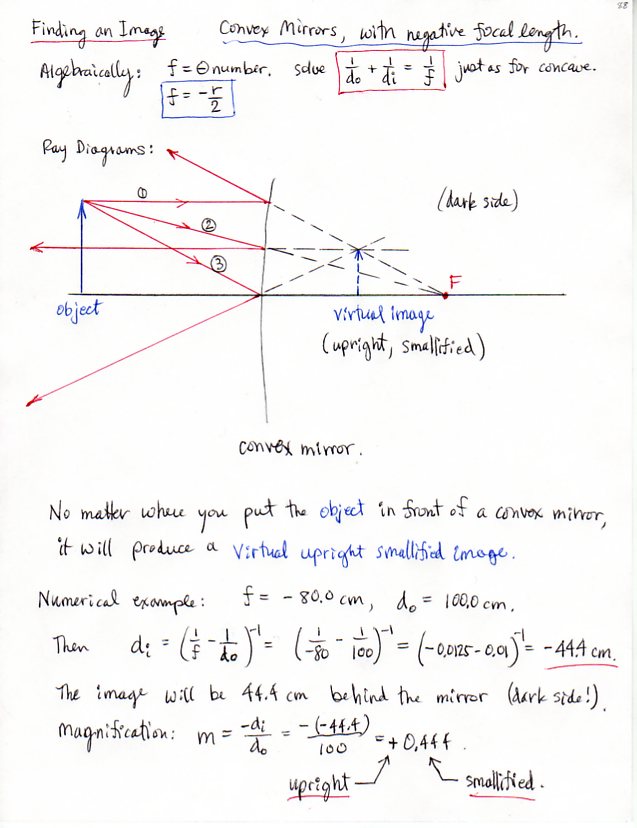 88
Finding an Image Convex Mirrors, with negative focal length.
Algebraically: f = ⊖ number. solve 1/do + 1/di = 1/f just as for concave.
f = -r/2
Ray Diagrams:
①
(dark side)
②
③
F
object
virtual image
(upright, smallified)
convex mirror.
No matter where you put the object in front of a convex mirror,
it will produce a virtual upright smallified image.
Numerical example: f = -80.0 cm, do = 100.0 cm.
Then di = (1/f - 1/do)^-1 = (1/-80 - 1/100)^-1 = (-0.0125 - 0.01)^-1 = -44.4 cm.
The image will be 44.4 cm behind the mirror (dark side!).
Magnification: m = -di/do = -(-44.4)/100 = +0.444.
upright smallified.